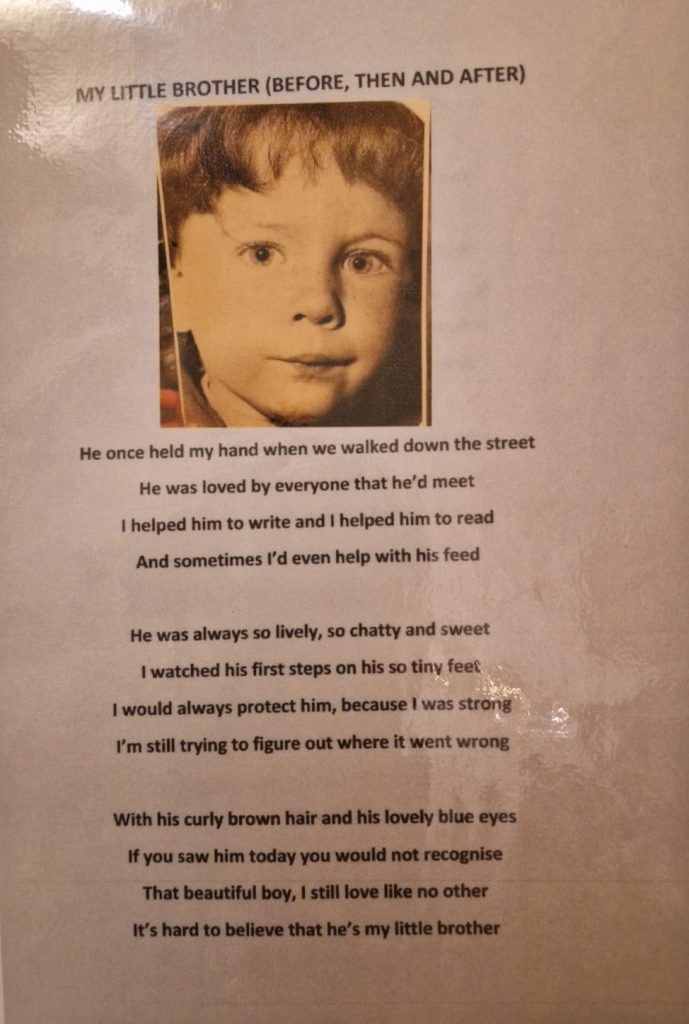 MY LITTLE BROTHER (BEFORE, THEN AND AFTER)
He once held my hand when we walked down the street
He was loved by everyone that he'd meet
I helped him to write and I helped him to read
And sometimes I'd even help with his feed
He was always so lively, so chatty and sweet
I watched his first steps on his so tiny feet
I would always protect him, because I was strong
I'm still trying to figure out where it went wrong
With his curly brown hair and his lovely blue eyes
If you saw him today you would not recognise
That beautiful boy, I still love like no other
It's hard to believe that he's my little brother